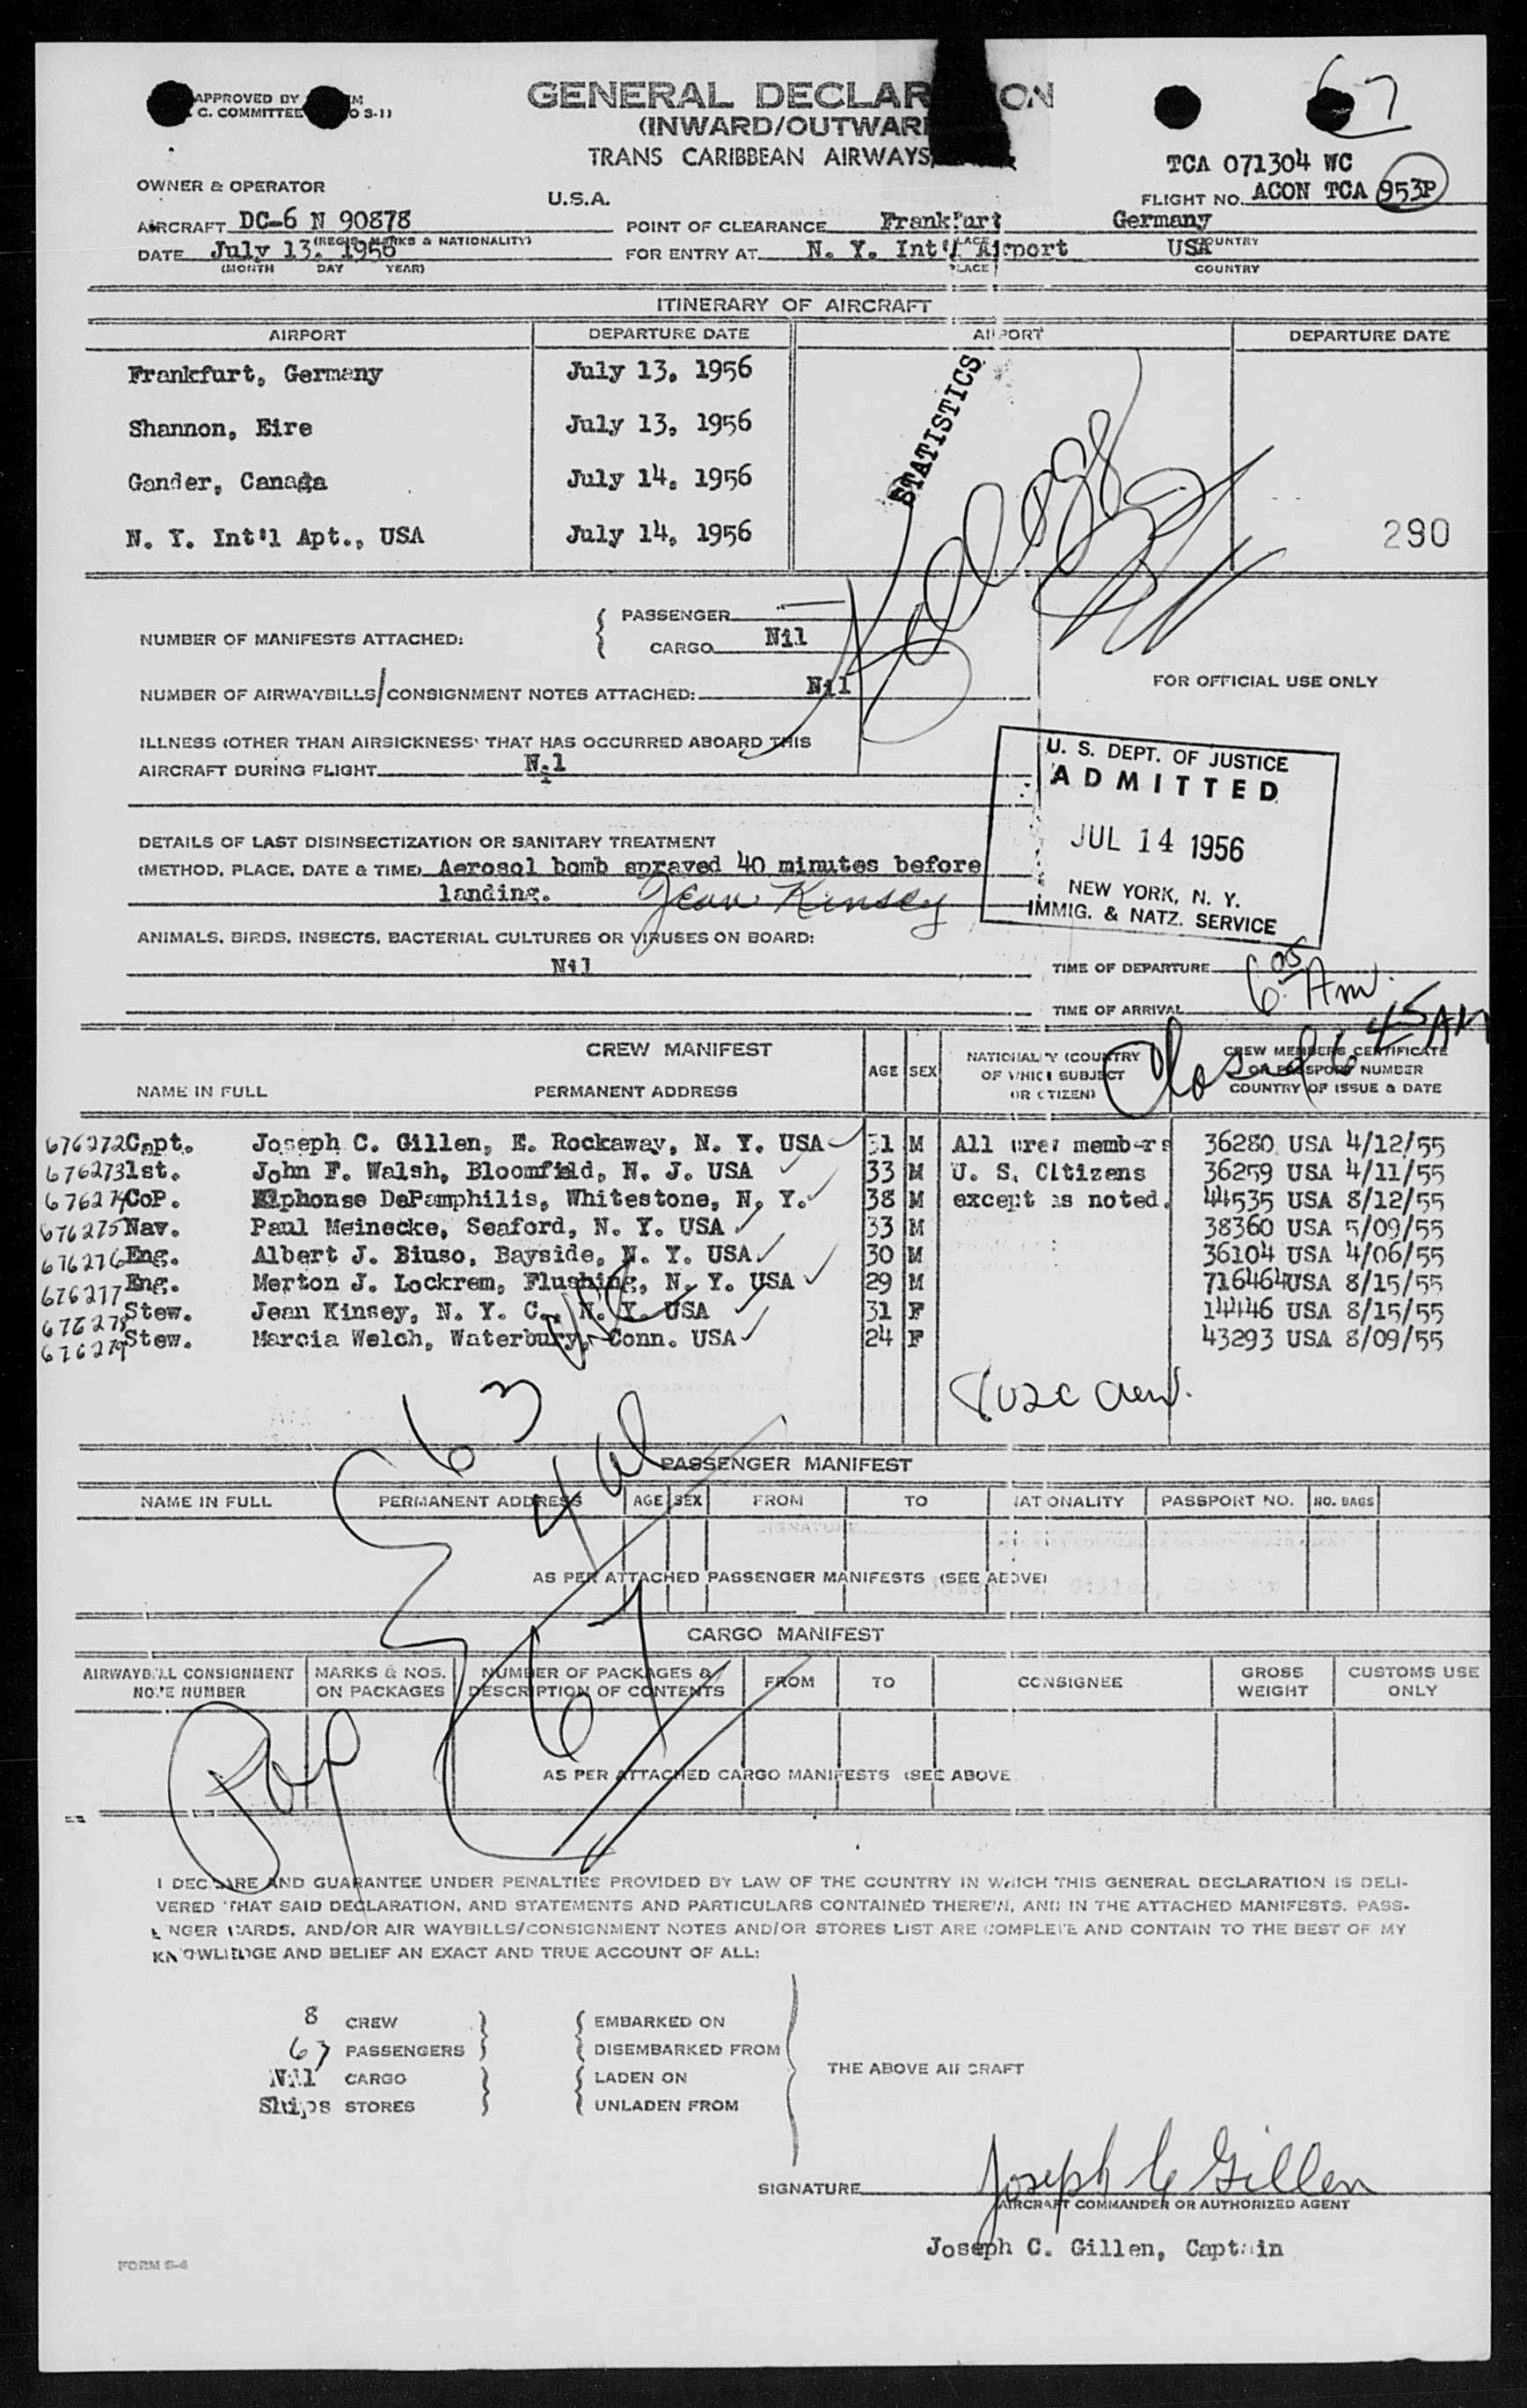 67
APPROVED BY
C. COMMITTEE
GENERAL DECLAR ON
(INWARD/OUTWAR
TRANS CARIBBEAN AIRWAYS,
TCA 071304 WC
OWNER & OPERATOR
U.S.A.
FLIGHT NO. ACON TCA 953P
AIRCRAFT DC-6 N 90878 POINT OF CLEARANCE Frankfurt Germany
(REGIS. MARKS & NATIONALITY) PLACE COUNTRY
DATE July 13, 1956 FOR ENTRY AT N. Y. Int'l Airport USA
(MONTH DAY YEAR) PLACE COUNTRY
ITINERARY OF AIRCRAFT
AIRPORT DEPARTURE DATE AIRPORT DEPARTURE DATE
Frankfurt, Germany July 13, 1956
STATISTICS
Shannon, Eire July 13, 1956
Gander, Canada July 14, 1956
N. Y. Int'l Apt., USA July 14, 1956 290
NUMBER OF MANIFESTS ATTACHED: PASSENGER —
CARGO Nil
NUMBER OF AIRWAYBILLS/CONSIGNMENT NOTES ATTACHED: Nil
FOR OFFICIAL USE ONLY
ILLNESS (OTHER THAN AIRSICKNESS) THAT HAS OCCURRED ABOARD THIS
AIRCRAFT DURING FLIGHT Nil
U. S. DEPT. OF JUSTICE
ADMITTED
JUL 14 1956
NEW YORK, N. Y.
IMMIG. & NATZ. SERVICE
DETAILS OF LAST DISINSECTIZATION OR SANITARY TREATMENT
(METHOD, PLACE, DATE & TIME) Aerosol bomb sprayed 40 minutes before
landing. Jean Kinsey
ANIMALS, BIRDS, INSECTS, BACTERIAL CULTURES OR VIRUSES ON BOARD:
Nil
TIME OF DEPARTURE
6 05 Am.
TIME OF ARRIVAL
Closed 6 45 AM
CREW MANIFEST
NAME IN FULL PERMANENT ADDRESS AGE SEX NATIONALITY (COUNTRY OF WHICH SUBJECT OR CITIZEN) CREW MEMBERS CERTIFICATE OR PASSPORT NUMBER COUNTRY OF ISSUE & DATE
676272 Capt. Joseph C. Gillen, E. Rockaway, N. Y. USA 31 M All crew members 36280 USA 4/12/55
676273 1st. John F. Walsh, Bloomfield, N. J. USA 33 M U. S. Citizens 36259 USA 4/11/55
676274 CoP. Alphonse DePamphilis, Whitestone, N. Y. 38 M except as noted. 44535 USA 8/12/55
676275 Nav. Paul Meinecke, Seaford, N. Y. USA 33 M 38360 USA 5/09/55
676276 Eng. Albert J. Biuso, Bayside, N. Y. USA 30 M 36104 USA 4/06/55
676277 Eng. Merton J. Lockrem, Flushing, N. Y. USA 29 M 716464 USA 8/15/55
676278 Stew. Jean Kinsey, N. Y. C., N. Y. USA 31 F 14446 USA 8/15/55
676279 Stew. Marcia Welch, Waterbury, Conn. USA 24 F 43293 USA 8/09/55
63
4
PASSENGER MANIFEST
NAME IN FULL PERMANENT ADDRESS AGE SEX FROM TO NATIONALITY PASSPORT NO. NO. BAGS
AS PER ATTACHED PASSENGER MANIFESTS (SEE ABOVE)
67
CARGO MANIFEST
AIRWAYBILL CONSIGNMENT NOTE NUMBER MARKS & NOS. ON PACKAGES NUMBER OF PACKAGES & DESCRIPTION OF CONTENTS FROM TO CONSIGNEE GROSS WEIGHT CUSTOMS USE ONLY
AS PER ATTACHED CARGO MANIFESTS (SEE ABOVE
I DECLARE AND GUARANTEE UNDER PENALTIES PROVIDED BY LAW OF THE COUNTRY IN WHICH THIS GENERAL DECLARATION IS DELI-
VERED THAT SAID DECLARATION, AND STATEMENTS AND PARTICULARS CONTAINED THEREIN, AND IN THE ATTACHED MANIFESTS, PASS-
ENGER CARDS, AND/OR AIR WAYBILLS/CONSIGNMENT NOTES AND/OR STORES LIST ARE COMPLETE AND CONTAIN TO THE BEST OF MY
KNOWLEDGE AND BELIEF AN EXACT AND TRUE ACCOUNT OF ALL:
8 CREW EMBARKED ON
67 PASSENGERS DISEMBARKED FROM
Nil CARGO LADEN ON
Ships STORES UNLADEN FROM
THE ABOVE AIRCRAFT
SIGNATURE Joseph C Gillen
AIRCRAFT COMMANDER OR AUTHORIZED AGENT
Joseph C. Gillen, Captain
FORM S-4